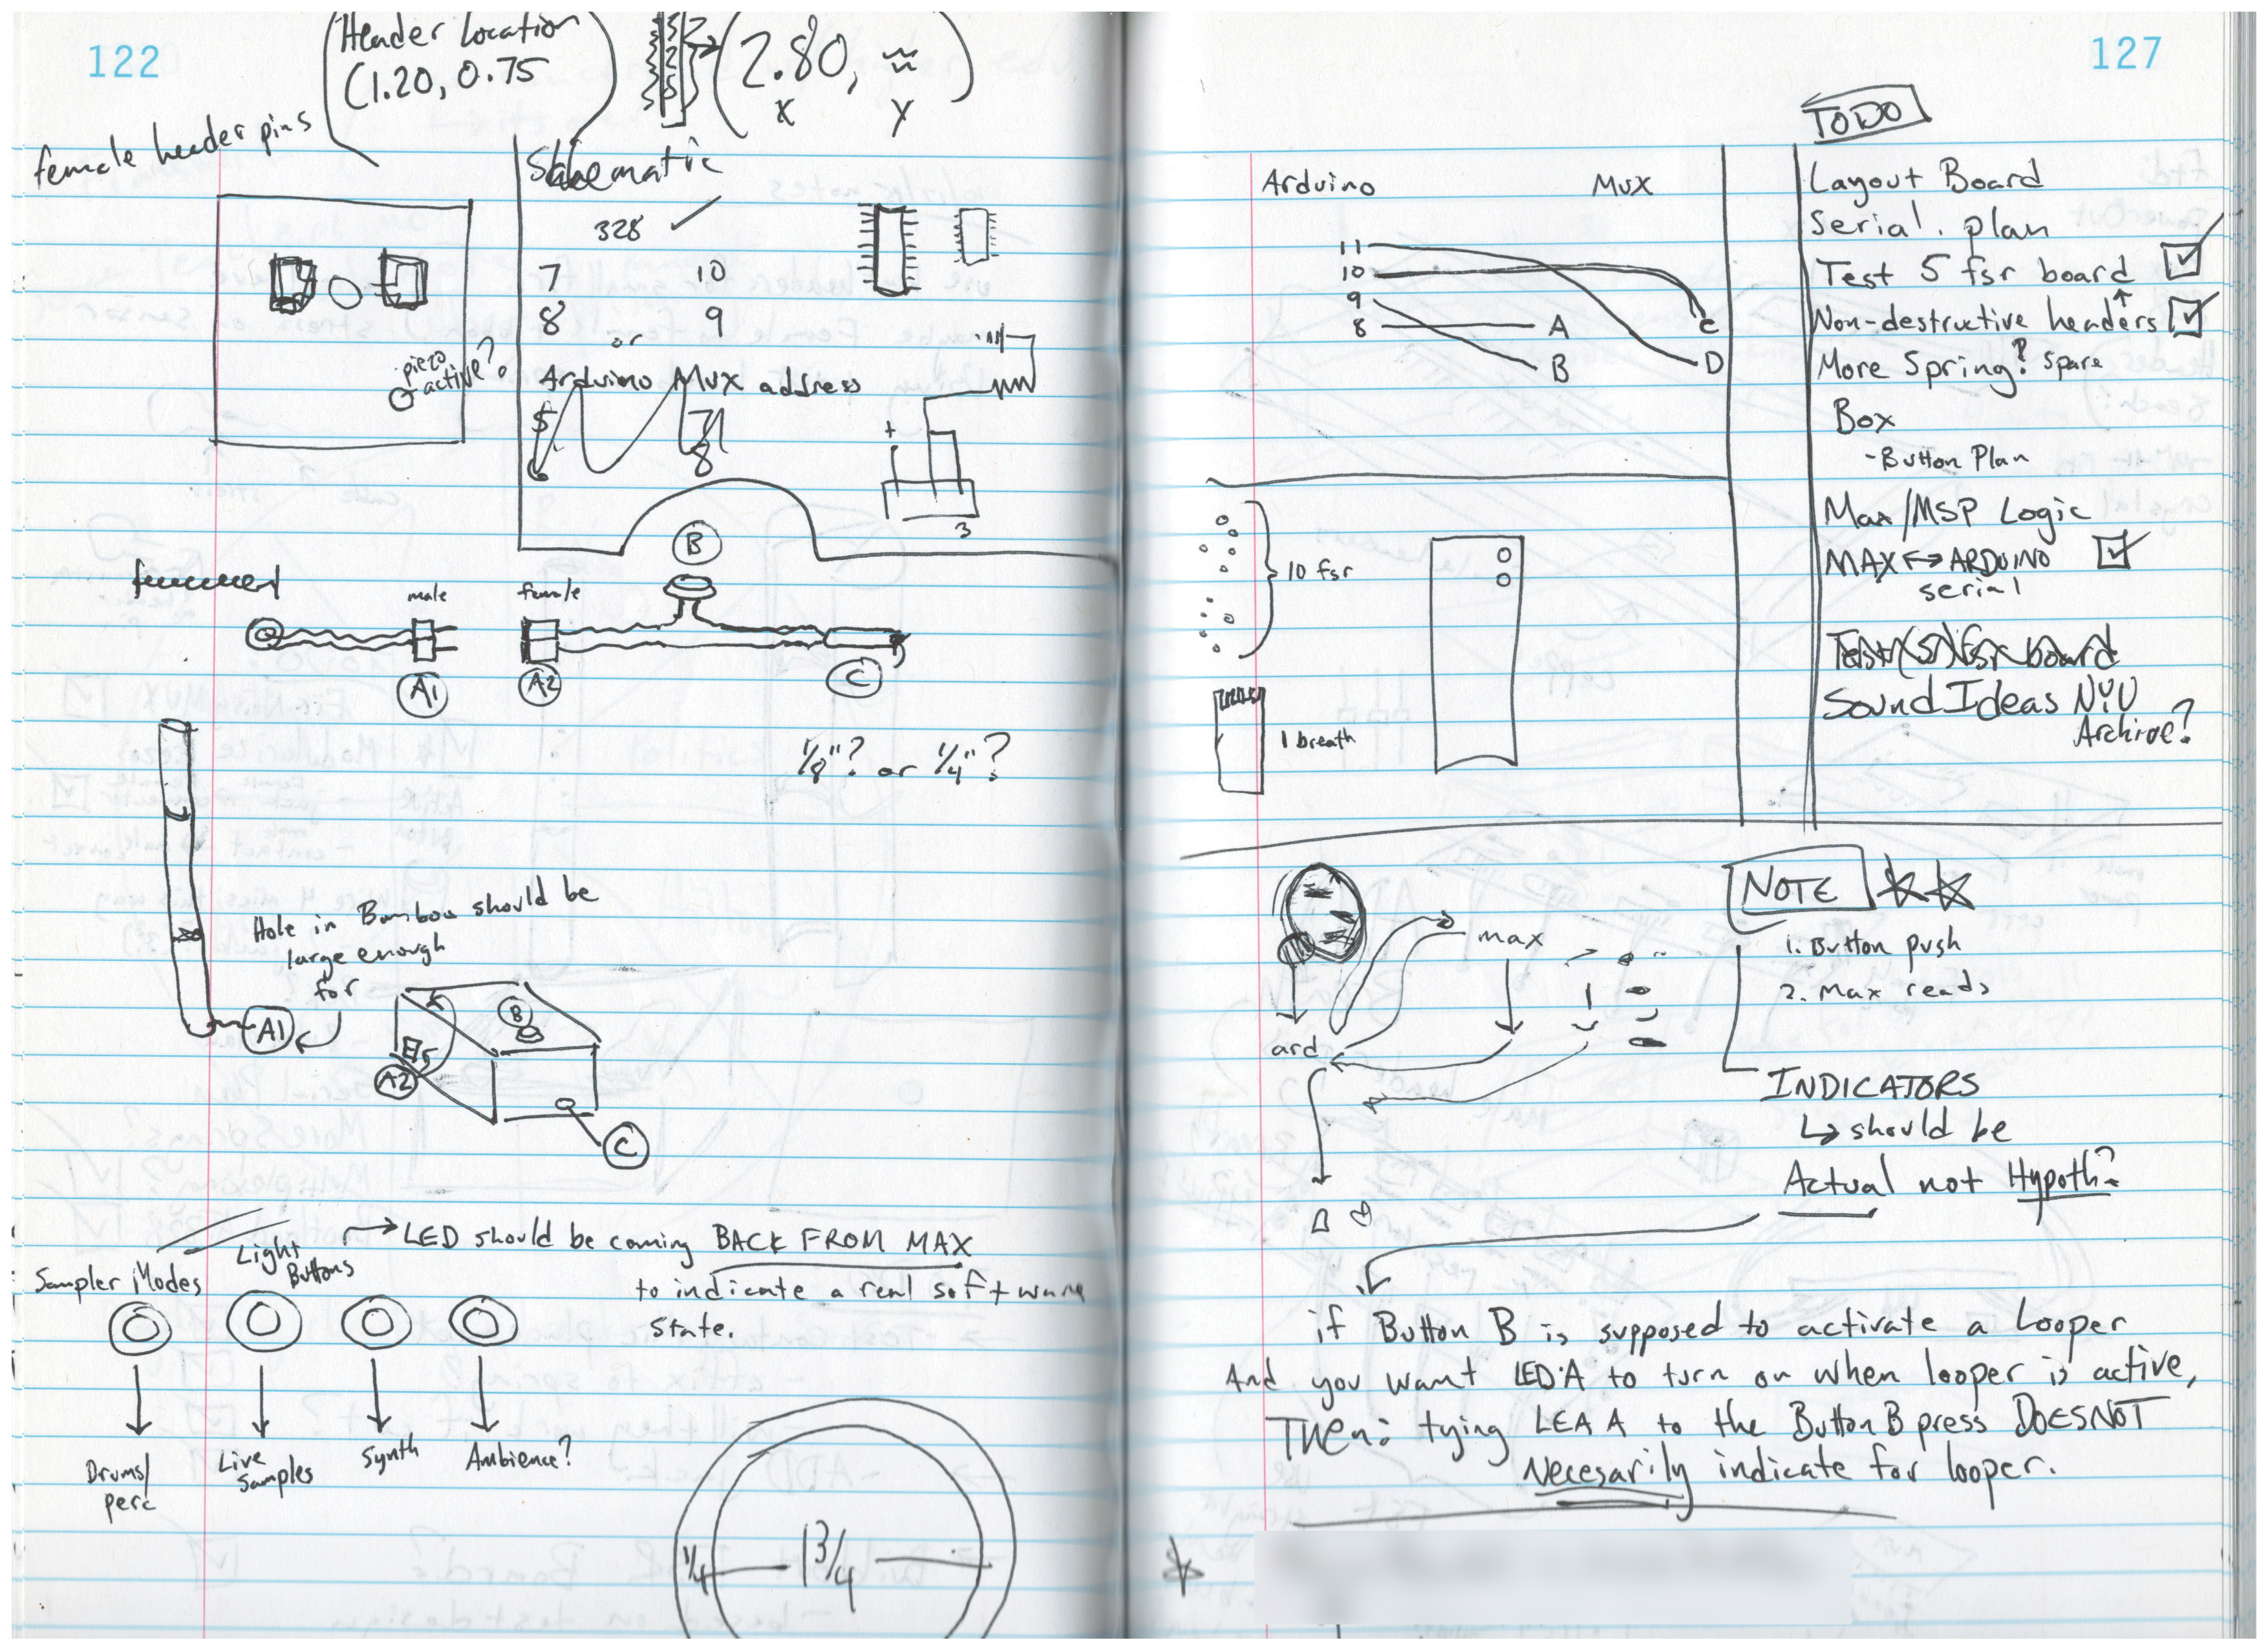 122
Header Location
(1.20, 0.75
(2.80, ≈)
x y
female header pins
Schematic
328 ✓
7 10
8 9
or
piezo
active?
Arduino Mux address
+
3
B
male female
A1 A2 C
1/8"? or 1/4"?
Hole in Bamboo should be
large enough
for
A1
B
A2
C
Light
Buttons
→ LED should be coming BACK FROM MAX
to indicate a real software
state.
Sampler Modes
Drums/
perc
Live
Samples
Synth
Ambience?
1/4 1 3/4
127
TODO
Layout Board
Serial. plan
Test 5 fsr board ☑
Non-destructive headers ☑
More Spring? Spare
Box
-Button Plan
Max/MSP Logic
MAX ↔ ARDUINO ☑
serial
Test (5) fsr board
Sound Ideas NYU
Archive?
Arduino Mux
11
10
9
8
A
B
C
D
10 fsr
1 breath
max
ard
NOTE
1. Button push
2. Max reads
INDICATORS
↳ should be
Actual not Hypoth?
if Button B is supposed to activate a Looper
And you want LED A to turn on when looper is active,
Then: tying LEA A to the Button B press DOES NOT
Necesarily indicate for looper.